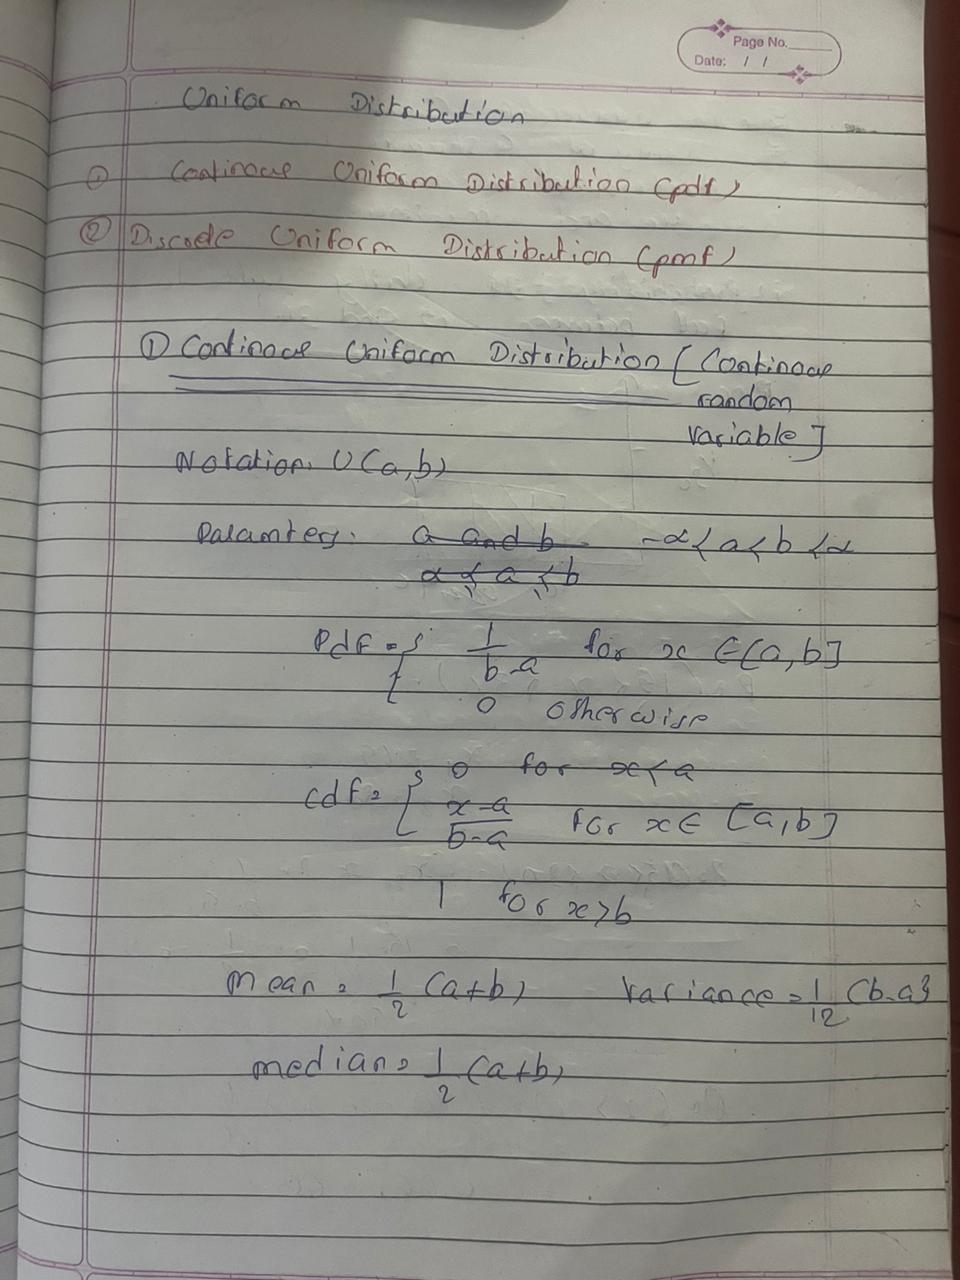 Page No.
Date: / /
Uniform Distribution
① Continoue Uniform Distribution (pdf)
② Discode Uniform Distribution (pmf)
① Continoue Uniform Distribution [Continoue
random
variable]
Notation. U(a,b)
Paramters: a and b -α < a < b < α
α < a < b
Pdf = { 1/b-a for x ∈ [a,b]
0 otherwise
cdf = { 0 for x < a
x-a/b-a for x ∈ [a,b]
1 for x > b
Mean = 1/2 (a+b) Variance = 1/12 (b-a)²
median = 1/2 (a+b)